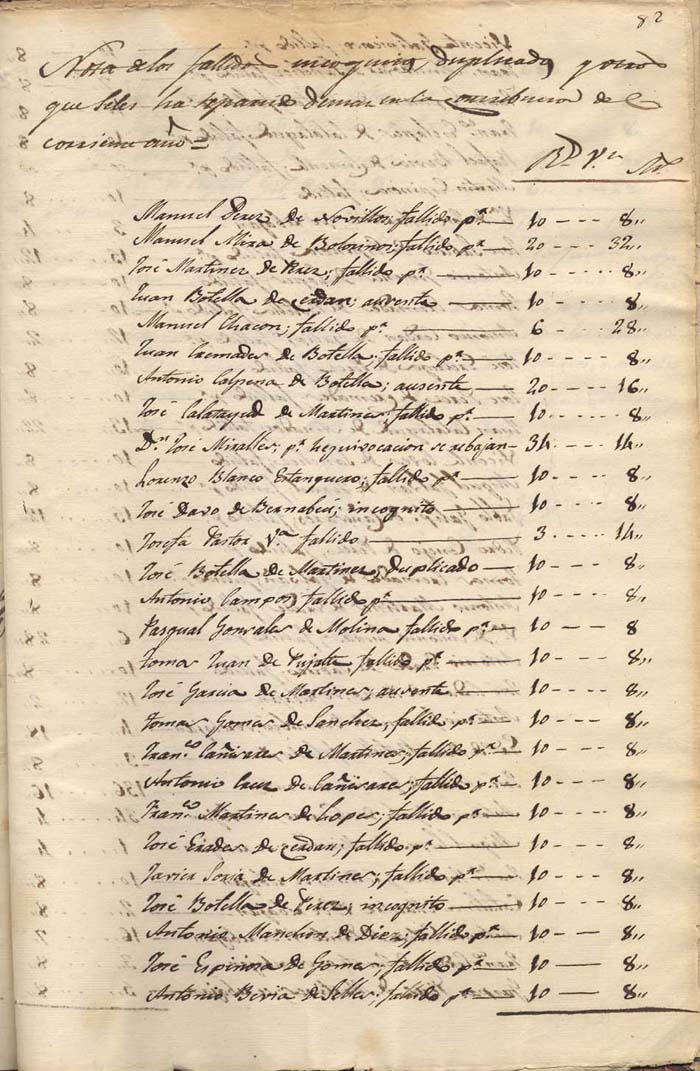 82
Nota de los fallidos incognitos, duplicados y otros
que se les ha reparado demas en la contribucion de
corriente año =
R.s V.n M.s
Manuel Perez de Novillos; fallido p.r 10 8,,
Manuel Mira de Bolorinos; fallido p.r 20 32,,
José Martinez de Perez; fallido p.r 10 8,,
Juan Botella de cerdan; ausente 10 8,,
Manuel Chacon; fallido p.r 6 28,,
Juan Cremades de Botella; fallido p.r 10 8,,
Antonio Calpena de Botella; ausente 20 16,,
José Calatayud de Martines; fallido p.r 10 8,,
D.n José Miralles; p.r hequivocacion se rebajan 34 14,,
Lorenzo Blanco Estanquero; fallido p.r 10 8,,
José Davo de Bernabeu; incognito 10 8,,
Josefa Pastor V.da fallido 3 14,,
José Botella de Martinez; duplicado 10 8,,
Antonio Campos fallido p.r 10 8,,
Pasqual Gonzales de Molina fallido p.r 10 8
Tomas Juan de fallido p.r 10 8,,
José Garcia de Martines; ausente 10 8,,
Tomas Gomes de Sanchez, fallido p.r 10 8,,
Fran.co Cañizares de Martines; fallido p.r 10 8,,
Antonio Cruz de Cañizares; fallido p.r 10 8,,
Fran.co Martines de Lopes; fallido p.r 10 8,,
José Erades de cerdan; fallido p.r 10 8,,
Javier Soria de Martines; fallido p.r 10 8,,
José Botella de Perez; incognito 10 8,,
Antonio Manchon de Diez; fallido p.r 10 8,,
José Espinosa de Gomes; fallido p.r 10 8,,
Antonio Beria de Selles; fallido p.r 10 8,,